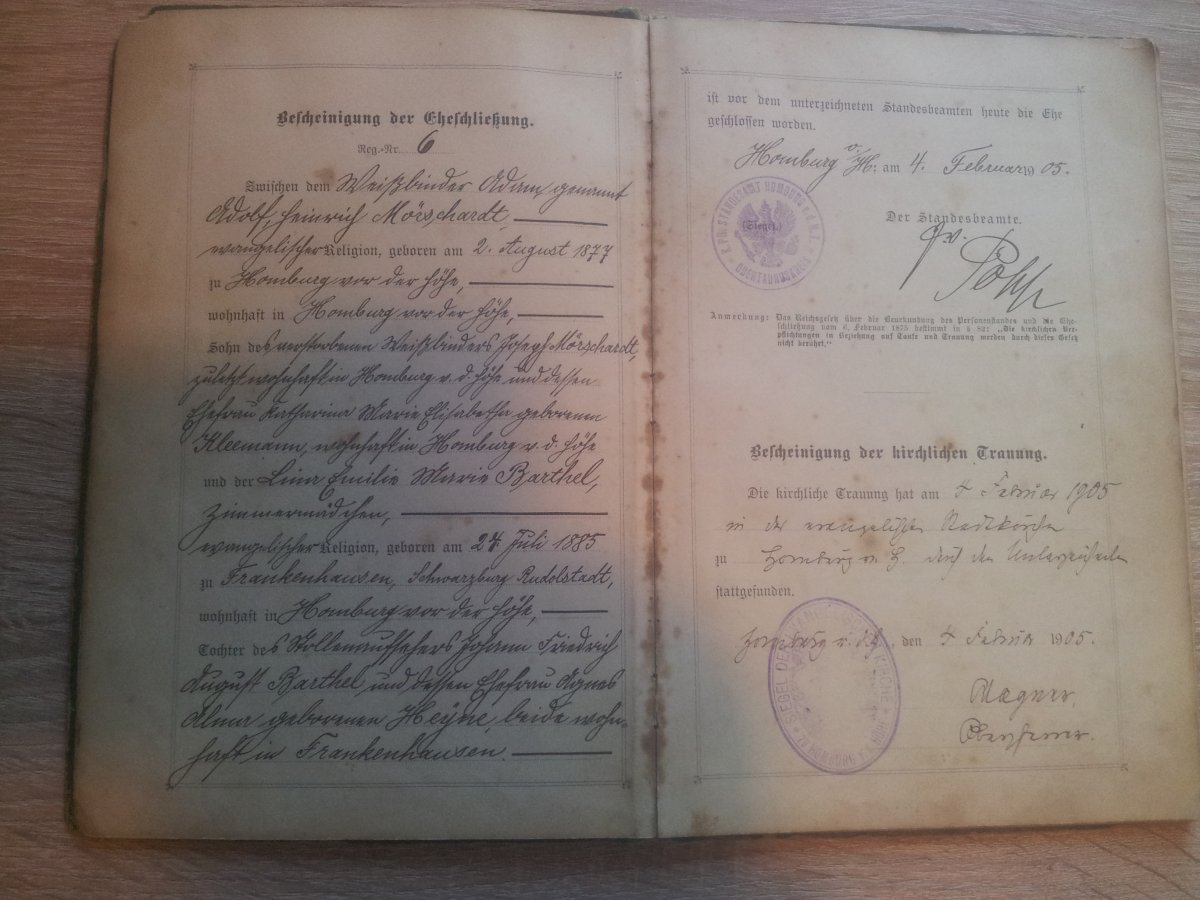 Bescheinigung der Eheschließung.
Reg.-Nr. 6
Zwischen dem Weißbinder Adam, genannt
Adolf, Heinrich Mörschardt,
evangelischer Religion, geboren am 2. August 1877
zu Homburg vor der Höhe,
wohnhaft in Homburg vor der Höhe,
Sohn des verstorbenen Weißbinders Joseph Mörschardt,
zuletzt wohnhaft in Homburg v. d. Höhe und dessen
Ehefrau Katharina Marie Elisabetha geborenen
Kleemann, wohnhaft in Homburg v. d. Höhe
und der Lina Emilie Marie Barthel,
Zimmermädchen,
evangelischer Religion, geboren am 24. Juli 1885
zu Frankenhausen, Schwarzburg Rudolstadt,
wohnhaft in Homburg vor der Höhe,
Tochter des Stollenaufsehers Johann Friedrich
August Barthel, und dessen Ehefrau Agnes
Alma geborenen Heyne, beide wohn-
haft in Frankenhausen.
ist vor dem unterzeichneten Standesbeamten heute die Ehe
geschlossen worden.
Homburg v./H. am 4. Februar 1905.
(Siegel.)
KPR. STANDESAMT HOMBURG v.d.H.
OBERTAUNUSKREIS
Der Standesbeamte.
Anmerkung: Das Reichsgesetz über die Beurkundung des Personenstandes und die Ehe-
schließung vom 6. Februar 1875 bestimmt in § 82: „Die kirchlichen Ver-
pflichtungen in Beziehung auf Taufe und Trauung werden durch dieses Gesetz
nicht berührt.“
Bescheinigung der kirchlichen Trauung.
Die kirchliche Trauung hat am 4 Februar 1905
in der evangelischen Stadtkirche
zu Homburg v. H. durch den Unterzeichneten
stattgefunden.
Homburg v. d. H., den 4 Februar 1905.
SIEGEL DER KIRCHE
ZU HOMBURG V.D. HÖHE
Oberpfarrer.